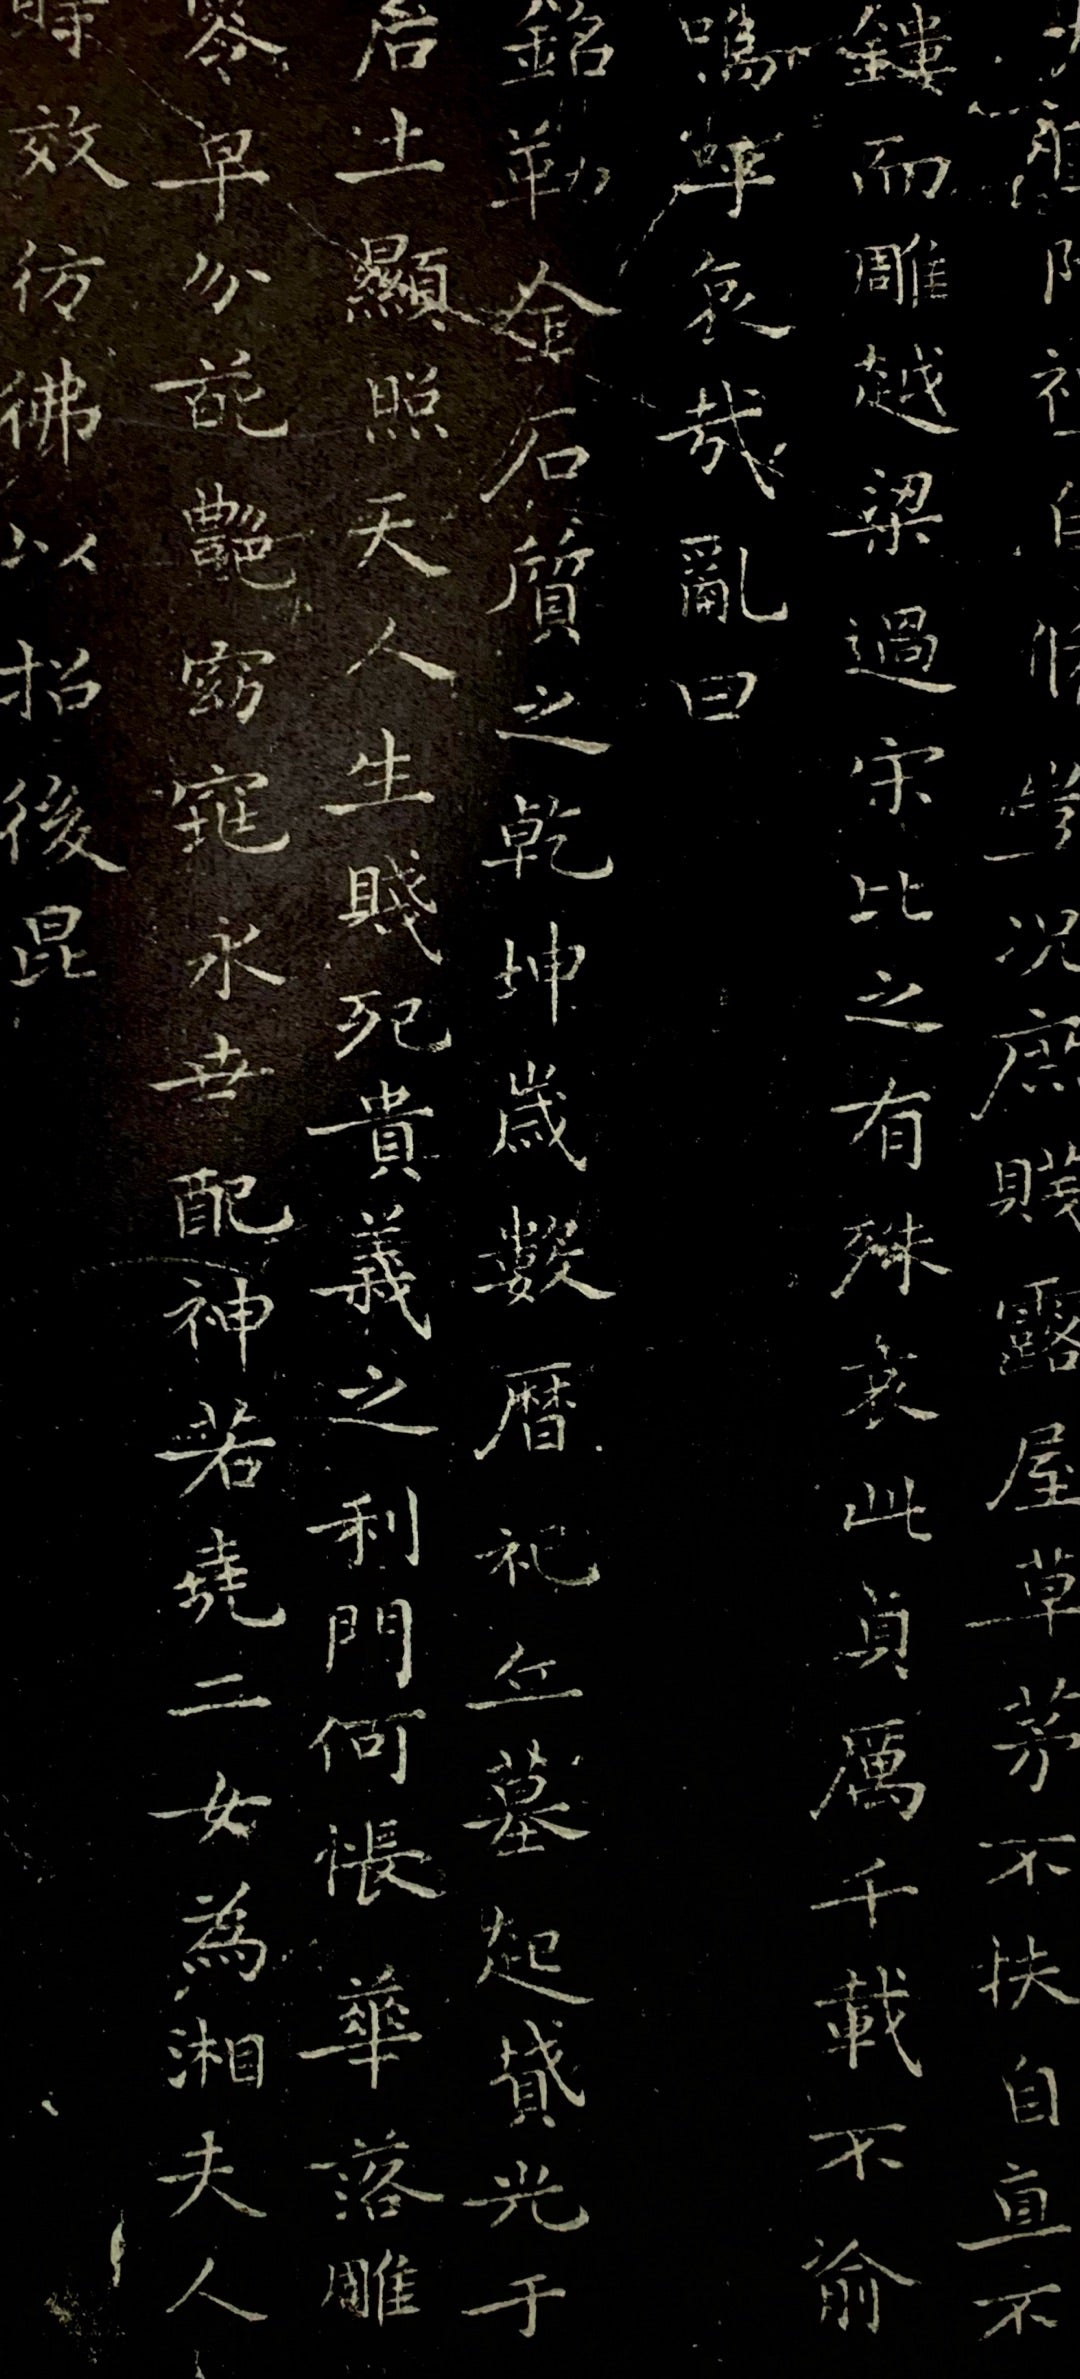 自脩豈況庶賤露屋草茅不扶自直不
鏤而雕越梁過宋比之有殊哀此貞厲千載不渝
嗚呼哀哉亂曰
銘勒金石質之乾坤歲數暦祀丘墓起墳光于
后土顯照天人生賤死貴義之利門何悵華落雕
零早分葩艷窈窕永世配神若堯二女為湘夫人
時效彷彿以招後昆